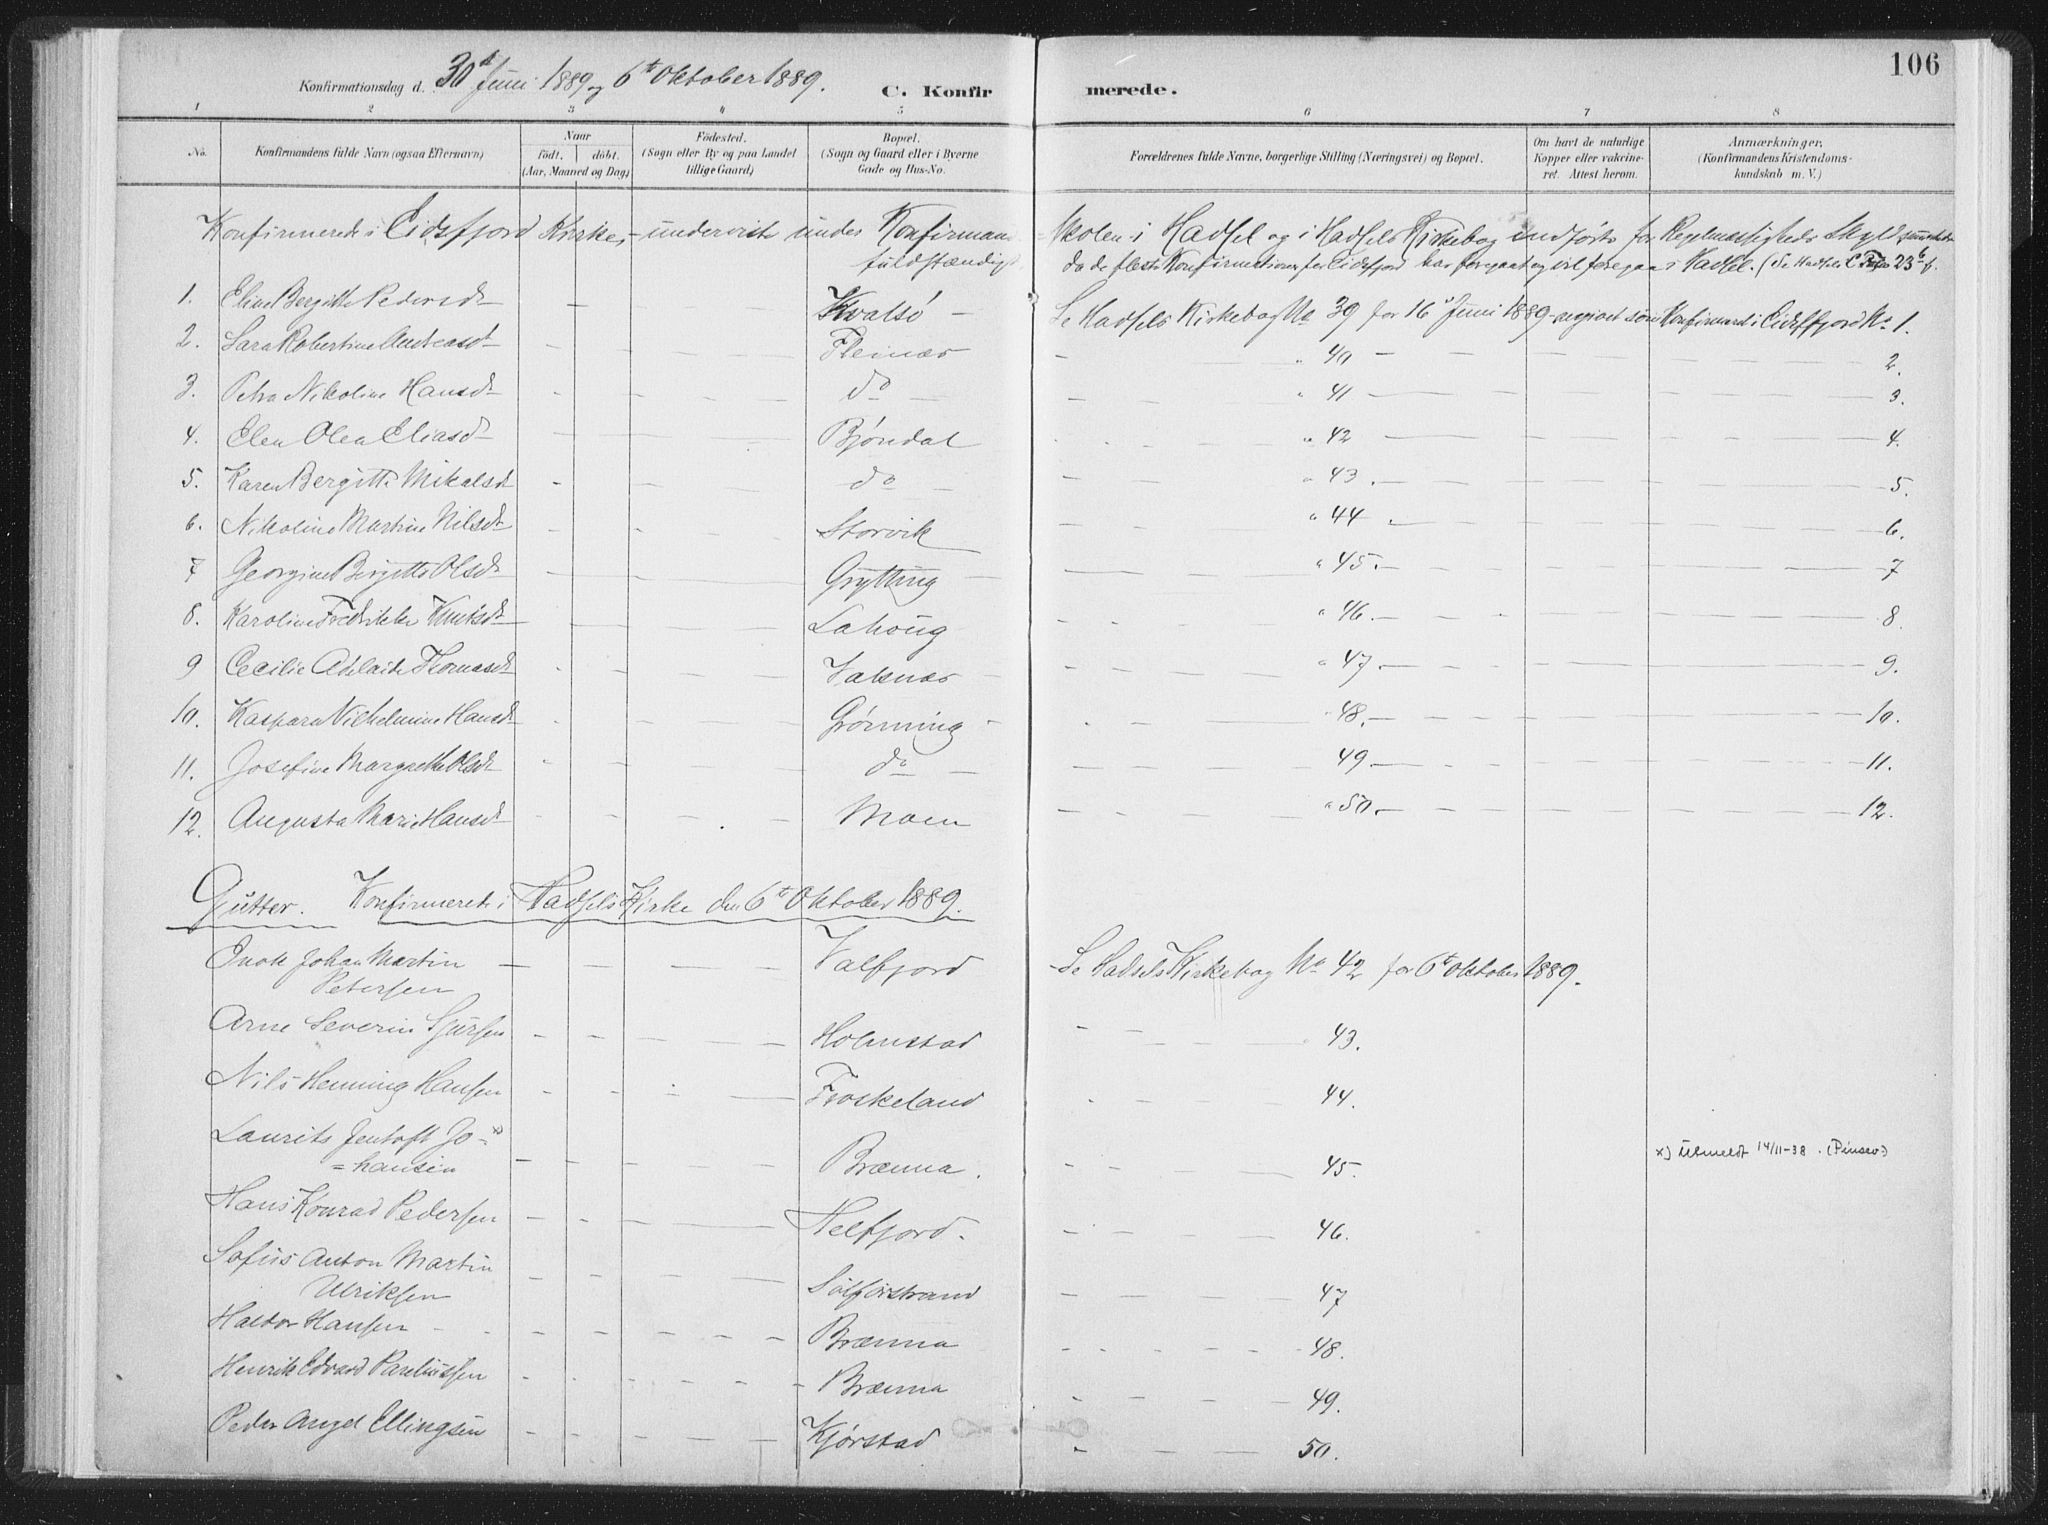 106
Konfirmationsdag d. 30t Juni 1889 og 6t Oktober 1889.
C. Konfirmerede.
1 2 3 4 5 6 7 8
No.
Konfirmandens fulde Navn (ogsaa Efternavn)
Naar
født, døbt.
(Aar, Maaned og Dag)
Fødested.
(Sogn eller By og paa Landet
tillige Gaard)
Bopæl.
(Sogn og Gaard eller i Byerne
Gade og Hus-No.
Forældrenes fulde Navne, borgerlige Stilling (Næringsvei) og Bopæl.
Om havt de naturlige
Kopper eller vakcine-
ret. Attest herom.
Anmærkninger,
(Konfirmandens Kristendoms-
kundskab m. V.)
Konfirmerede i Eidsfjord Kirke, - underviste under Konfirmand
=skolen i Hadsel og i Hadsels Kirkebog indførte for Regelmæssigheds Skyld
fuldstændigt,
da de fleste Konfirmationer for Eidsfjord har foregaaet og vil foregaa i Hadsel. (Se Hadsels C 23
1. Eline Bergitte Pedersdt - Kvalsø - Se Hadsels Kirkebog No 39 for 16 Juni 1889 - som Konfirmand i Eidsfjord No 1.
2. Sara Robertine Andreasdt Fleinæs - " 40 - 2.
3. Petra Nikoline Hansdt do - " 41 - 3.
4. Elen Olea Eliasdt Bjørndal " 42 - 4.
5. Karen Bergitte Mikalsdt do - " 43. - 5.
6. Nikoline Martine Nilsdt Storvik - " 44 - 6.
7 Georgine Birgitte Olsdt Grytting - " 45. - 7
8. Karoline Fredrikke Knutsdt Lahoug - " 46. - 8.
9 Cecilie Adelaide Thomasdt Valsnæs - " 47. - 9.
10. Kaspara Vilhelmine Hansdt Grønning - " 48. - 10.
11. Josefine Margrethe Olsdt do - 49 - 11.
12. Augusta Marie Hansdt Moen - " 50. - 12.
Gutter. Konfirmerede i Hadsels Kirke den 6t Oktober 1889.
Enok Johan Martin - Valfjord - Se Hadsels Kirkebog No 42 for 6t Oktober 1889.
Petersen
Arne Severin Sjursen Holmstad 43.
Nils Henning Hansen Froskeland 44.
Laurits Jentoft Jo- x)
=hansen Brænna. 45. x) Utmeldt 14/11-38. (Pinsev.)
Hans Konrad Pedersen Helfjord. 46.
Sofus Anton Martin
Ulriksen 47
Haldor Hansen Brænna 48.
Henrik Edvard Paulussen Brænna 49.
Peder Angel Ellingsen Kjørstad 50.